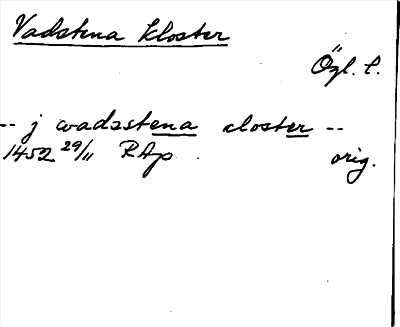 Vadstena kloster
Ögl. l.
-- j wadzstena closter --
1452 29/11 RAp orig.